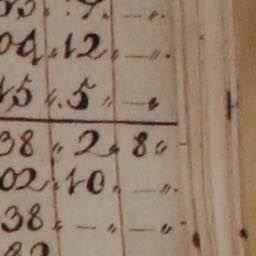 04 " 12 " — "
15 " 5 " — "
38 " 2 " 8 "
02 " 10 " — "
38 " — " — "